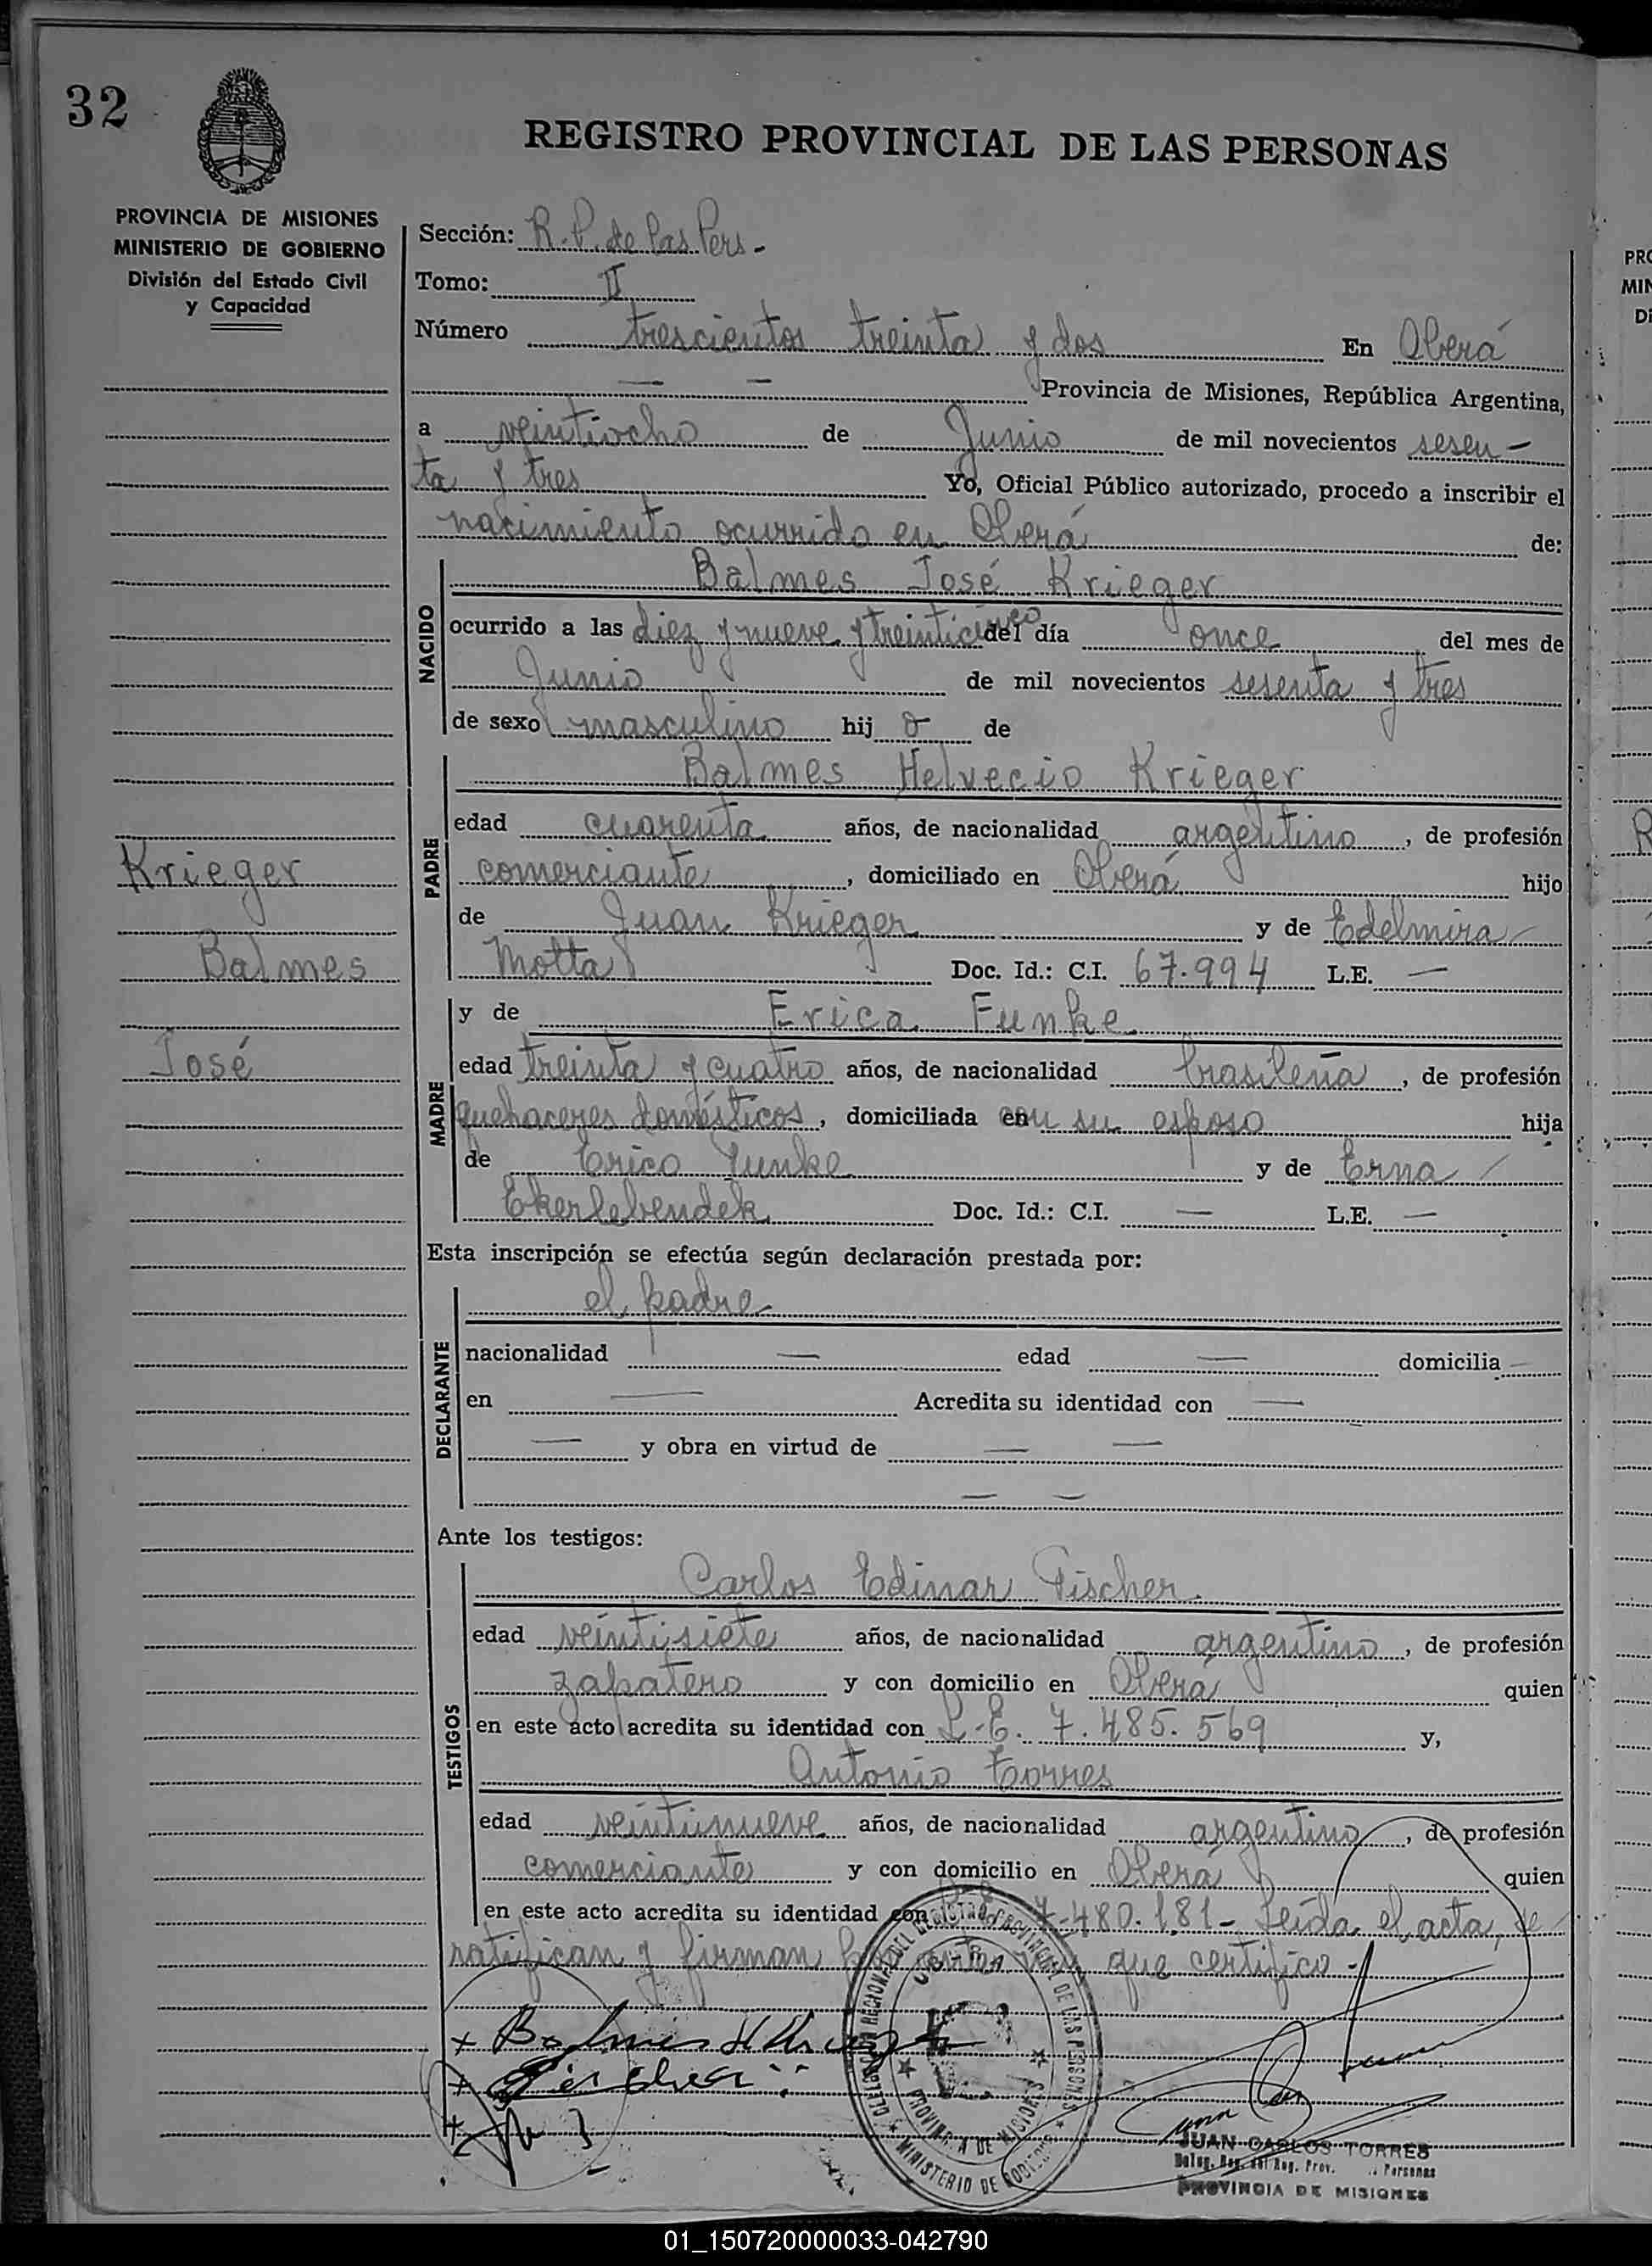 32
REGISTRO PROVINCIAL DE LAS PERSONAS
PROVINCIA DE MISIONES
MINISTERIO DE GOBIERNO
División del Estado Civil
y Capacidad
Krieger
Balmes
José
Sección: R. P. de las Pers -
Tomo: II
Número trescientos treinta y dos En Oberá
— — Provincia de Misiones, República Argentina,
a veintiocho de Junio de mil novecientos sesen -
ta y tres Yo, Oficial Público autorizado, procedo a inscribir el
nacimiento ocurrido en Oberá de:
NACIDO
Balmes José Krieger
ocurrido a las diez y nueve y treinticinco del día once del mes de
Junio de mil novecientos sesenta y tres
de sexo masculino hij o de
PADRE
Balmes Helvecio Krieger
edad cuarenta años, de nacionalidad argentino, de profesión
comerciante, domiciliado en Oberá hijo
de Juan Krieger y de Edelmira
Motta Doc. Id.: C.I. 67.994 L.E. —
MADRE
y de Erica Funke
edad treinta y cuatro años, de nacionalidad brasileña, de profesión
quehaceres domésticos, domiciliada con su esposo hija
de Erico Funke y de Erna
Ekerlebendek Doc. Id.: C.I. — L.E. —
Esta inscripción se efectúa según declaración prestada por:
DECLARANTE
el padre
nacionalidad — edad — domicilia —
en — Acredita su identidad con —
— y obra en virtud de — —
— —
Ante los testigos:
TESTIGOS
Carlos Edimar Fischer
edad veintisiete años, de nacionalidad argentino, de profesión
zapatero y con domicilio en Oberá quien
en este acto acredita su identidad con L.E. 7.485.569 y,
Antonio Torres
edad veintinueve años, de nacionalidad argentino, de profesión
comerciante y con domicilio en Oberá quien
en este acto acredita su identidad con L.E. 7.480.181 - Leída el acta, se
ratifican y firman por ante mí que certifico -
Balmes H Krieger
Fischer
DELEGACION REGIONAL DEL REGISTRO PROVINCIAL DE LAS PERSONAS
OBERA
PROVINCIA DE MISIONES
MINISTERIO DE GOBIERNO
JUAN CARLOS TORRES
Deleg. Reg. del Reg. Prov. Personas
PROVINCIA DE MISIONES
PRO
MIN
Di
R
01_150720000033-042790